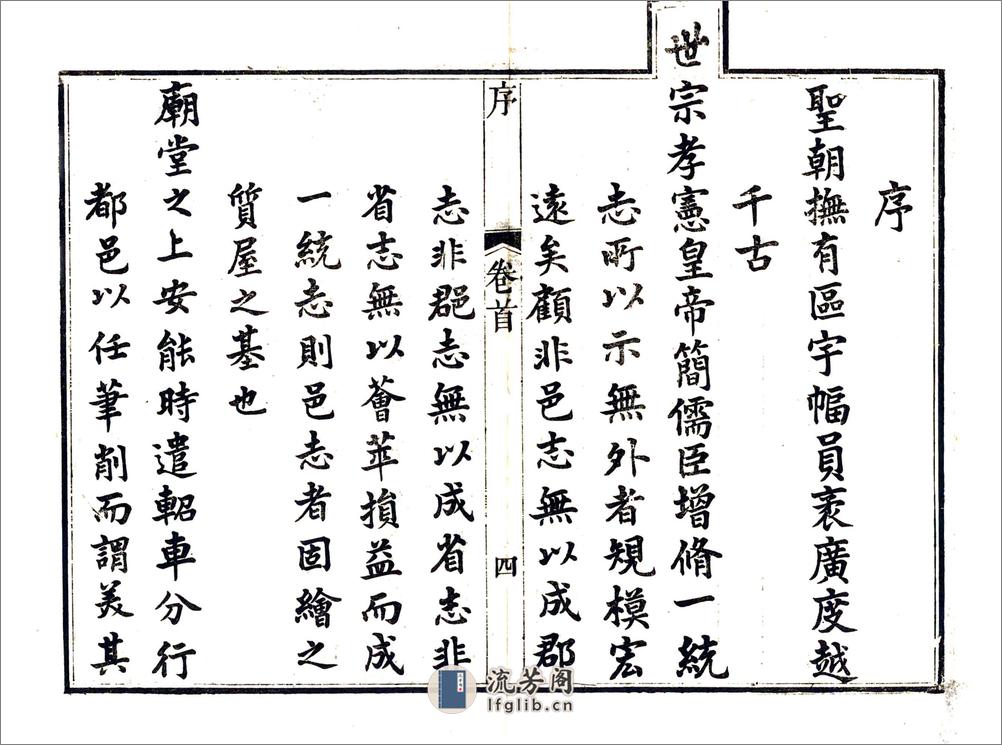 序
聖朝撫有區宇幅員袤廣度越
千古
世宗孝憲皇帝簡儒臣增脩一統
志所以示無外者規模宏
遠矣顧非邑志無以成郡
序
卷首
四
志非郡志無以成省志非
省志無以薈萃損益而成
一統志則邑志者固繪之
質屋之基也
廟堂之上安能時遣軺車分行
都邑以任筆削而謂美其
流芳阁
lfglib.cn